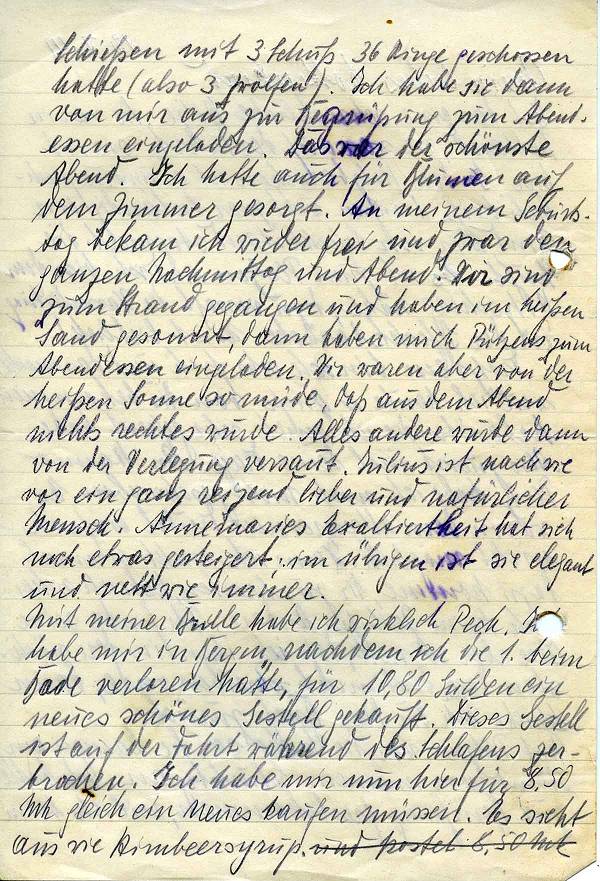 Schießen mit 3 Schuß 36 Ringe geschossen
hatte (also 3 zwölfen). Ich habe sie dann
von mir aus zur Begrüßung zum Abend-
essen eingeladen. Das war der schönste
Abend. Ich hatte auch für Blumen auf
dem Zimmer gesorgt. An meinem Geburts-
tag bekam ich wieder frei und zwar den
ganzen Nachmittag und Abend. Wir sind
zum Strand gegangen und haben im heißen
Sand gesonnt, dann haben mich Pützens zum
Abendessen eingeladen. Wir waren aber von der
heißen Sonne so müde, daß aus dem Abend
nichts rechtes wurde. Alles andere wurde dann
von der Verlegung versaut. Julius ist nach wie
vor ein ganz reizend lieber und natürlicher
Mensch. Annemaries Exaltiertheit hat sich
noch etwas gesteigert, im übrigen ist sie elegant
und nett wie immer.
Mit meiner Brille habe ich wirklich Pech. Ich
habe mir in Bergen, nachdem ich die 1. beim
Bade verloren hatte, für 10,80 Gulden ein
neues schönes Gestell gekauft. Dieses Gestell
ist auf der Fahrt während des Schlafens zer-
brochen. Ich habe mir nun hier für 8,50
Mk gleich ein neues kaufen müssen. Es sieht
aus wie Himbeersyrup. und kostet 8,50 Mk